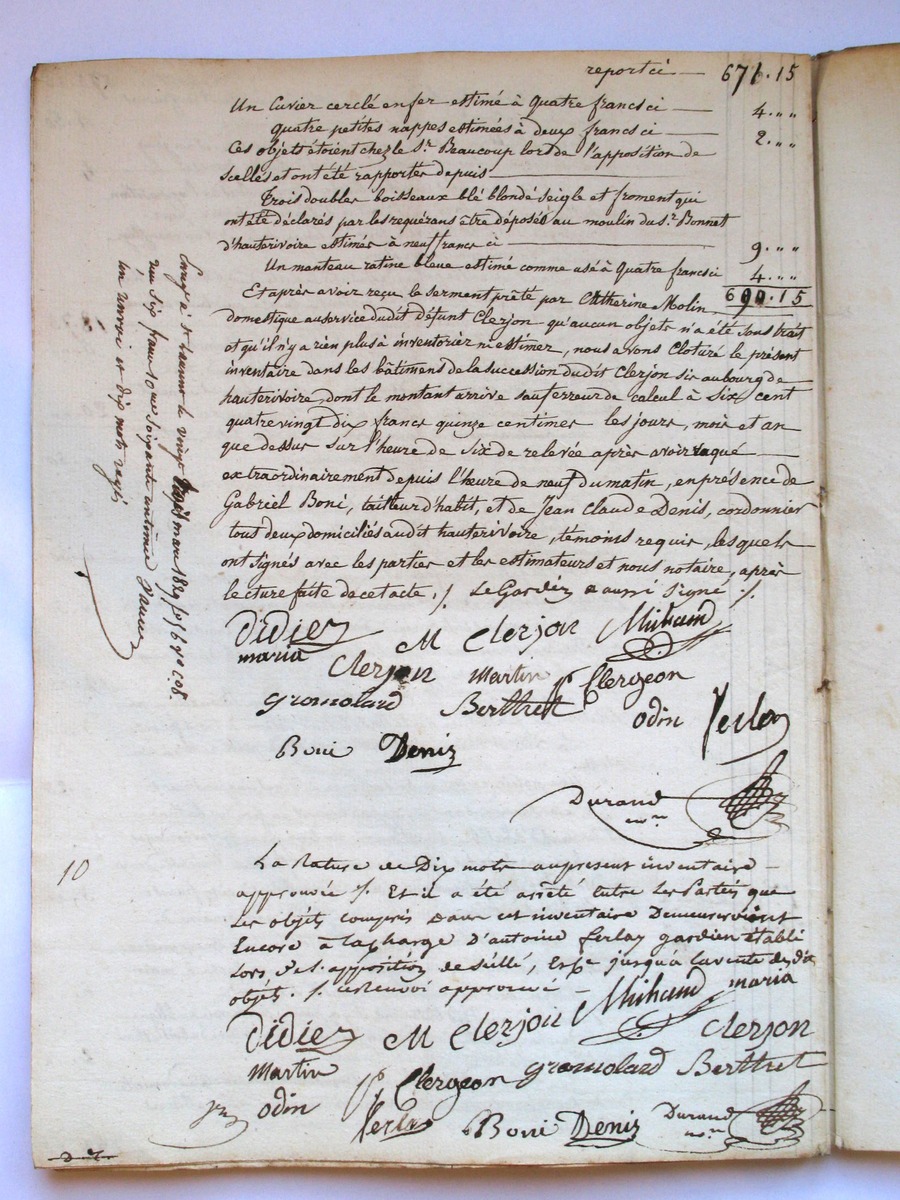 report ci — 671.15
Un Cuvier cerclé en fer estimé à Quatre francs ci — 4. " "
quatre petites nappes estimées à deux francs ci — 2. " "
Ces objets étoient chez le Sr. Beaucoup lors de l'apposition de
scellés et ont été rapportés depuis —
Trois doubles boisseaux blé blondé seigle et froment qui
ont été déclarés par les requérans être déposés au moulin du Sr. Bonnet
d'hauterivoire estimés à neuf francs ci — 9. " "
Un manteau ratine bleue estimé comme usé à Quatre francs ci 4. " "
690.15
Et après avoir reçu le serment prêté par Catherine Molin
domestique au service dudit défunt Clerjon qu'aucun objets n'a été soustrait
et qu'il n'y a rien plus à inventorier ni estimer, nous avons Cloturé le présent
inventaire dans les bâtimens de la succession dudit Clerjon sis au bourg de
hauterivoire, dont le montant arrive sauf erreur de calcul à Six cent
quatre vingt dix francs quinze centimes les jours, mois et an
que dessus sur l'heure de six de relevée après avoir vaqué —
extraordinairement depuis l'heure de neuf du matin, en présence de
Gabriel Boni, tailleur d'habit, et de Jean Claude Denis, cordonnier
tous deux domiciliés audit hauterivoire, témoins requis, lesquels
ont signés avec les parties et les estimateurs et nous notaire, après
lecture faite de cet acte, /. Le Gardien a aussi Signé /.
Didier M Clerjon Michaud
maria Clerjon martin Clergeon
gromolard Berthet odin ferlay
Boni Deniz
Durand
nre
La Rature de Dix mots au present inventaire —
approuvée /. Et il a été arrêté Entre Les Parties que
Les objets compris dans cet inventaire Demeureroient
Encore à la charge D'antoine ferlay gardien établi
Lors de l'apposition de scellé, jusqu'à la vente desdits
objets. /. ce Renvoi approuvé —
Didier M Clerjon Michaud maria
Martin Clergeon gromolard Clerjon
odin Berthet
ferlay Boni Deniz Durand
nre
10
le vingt mars 1829
six francs soixante centimes
un renvoi et dix mots rayés